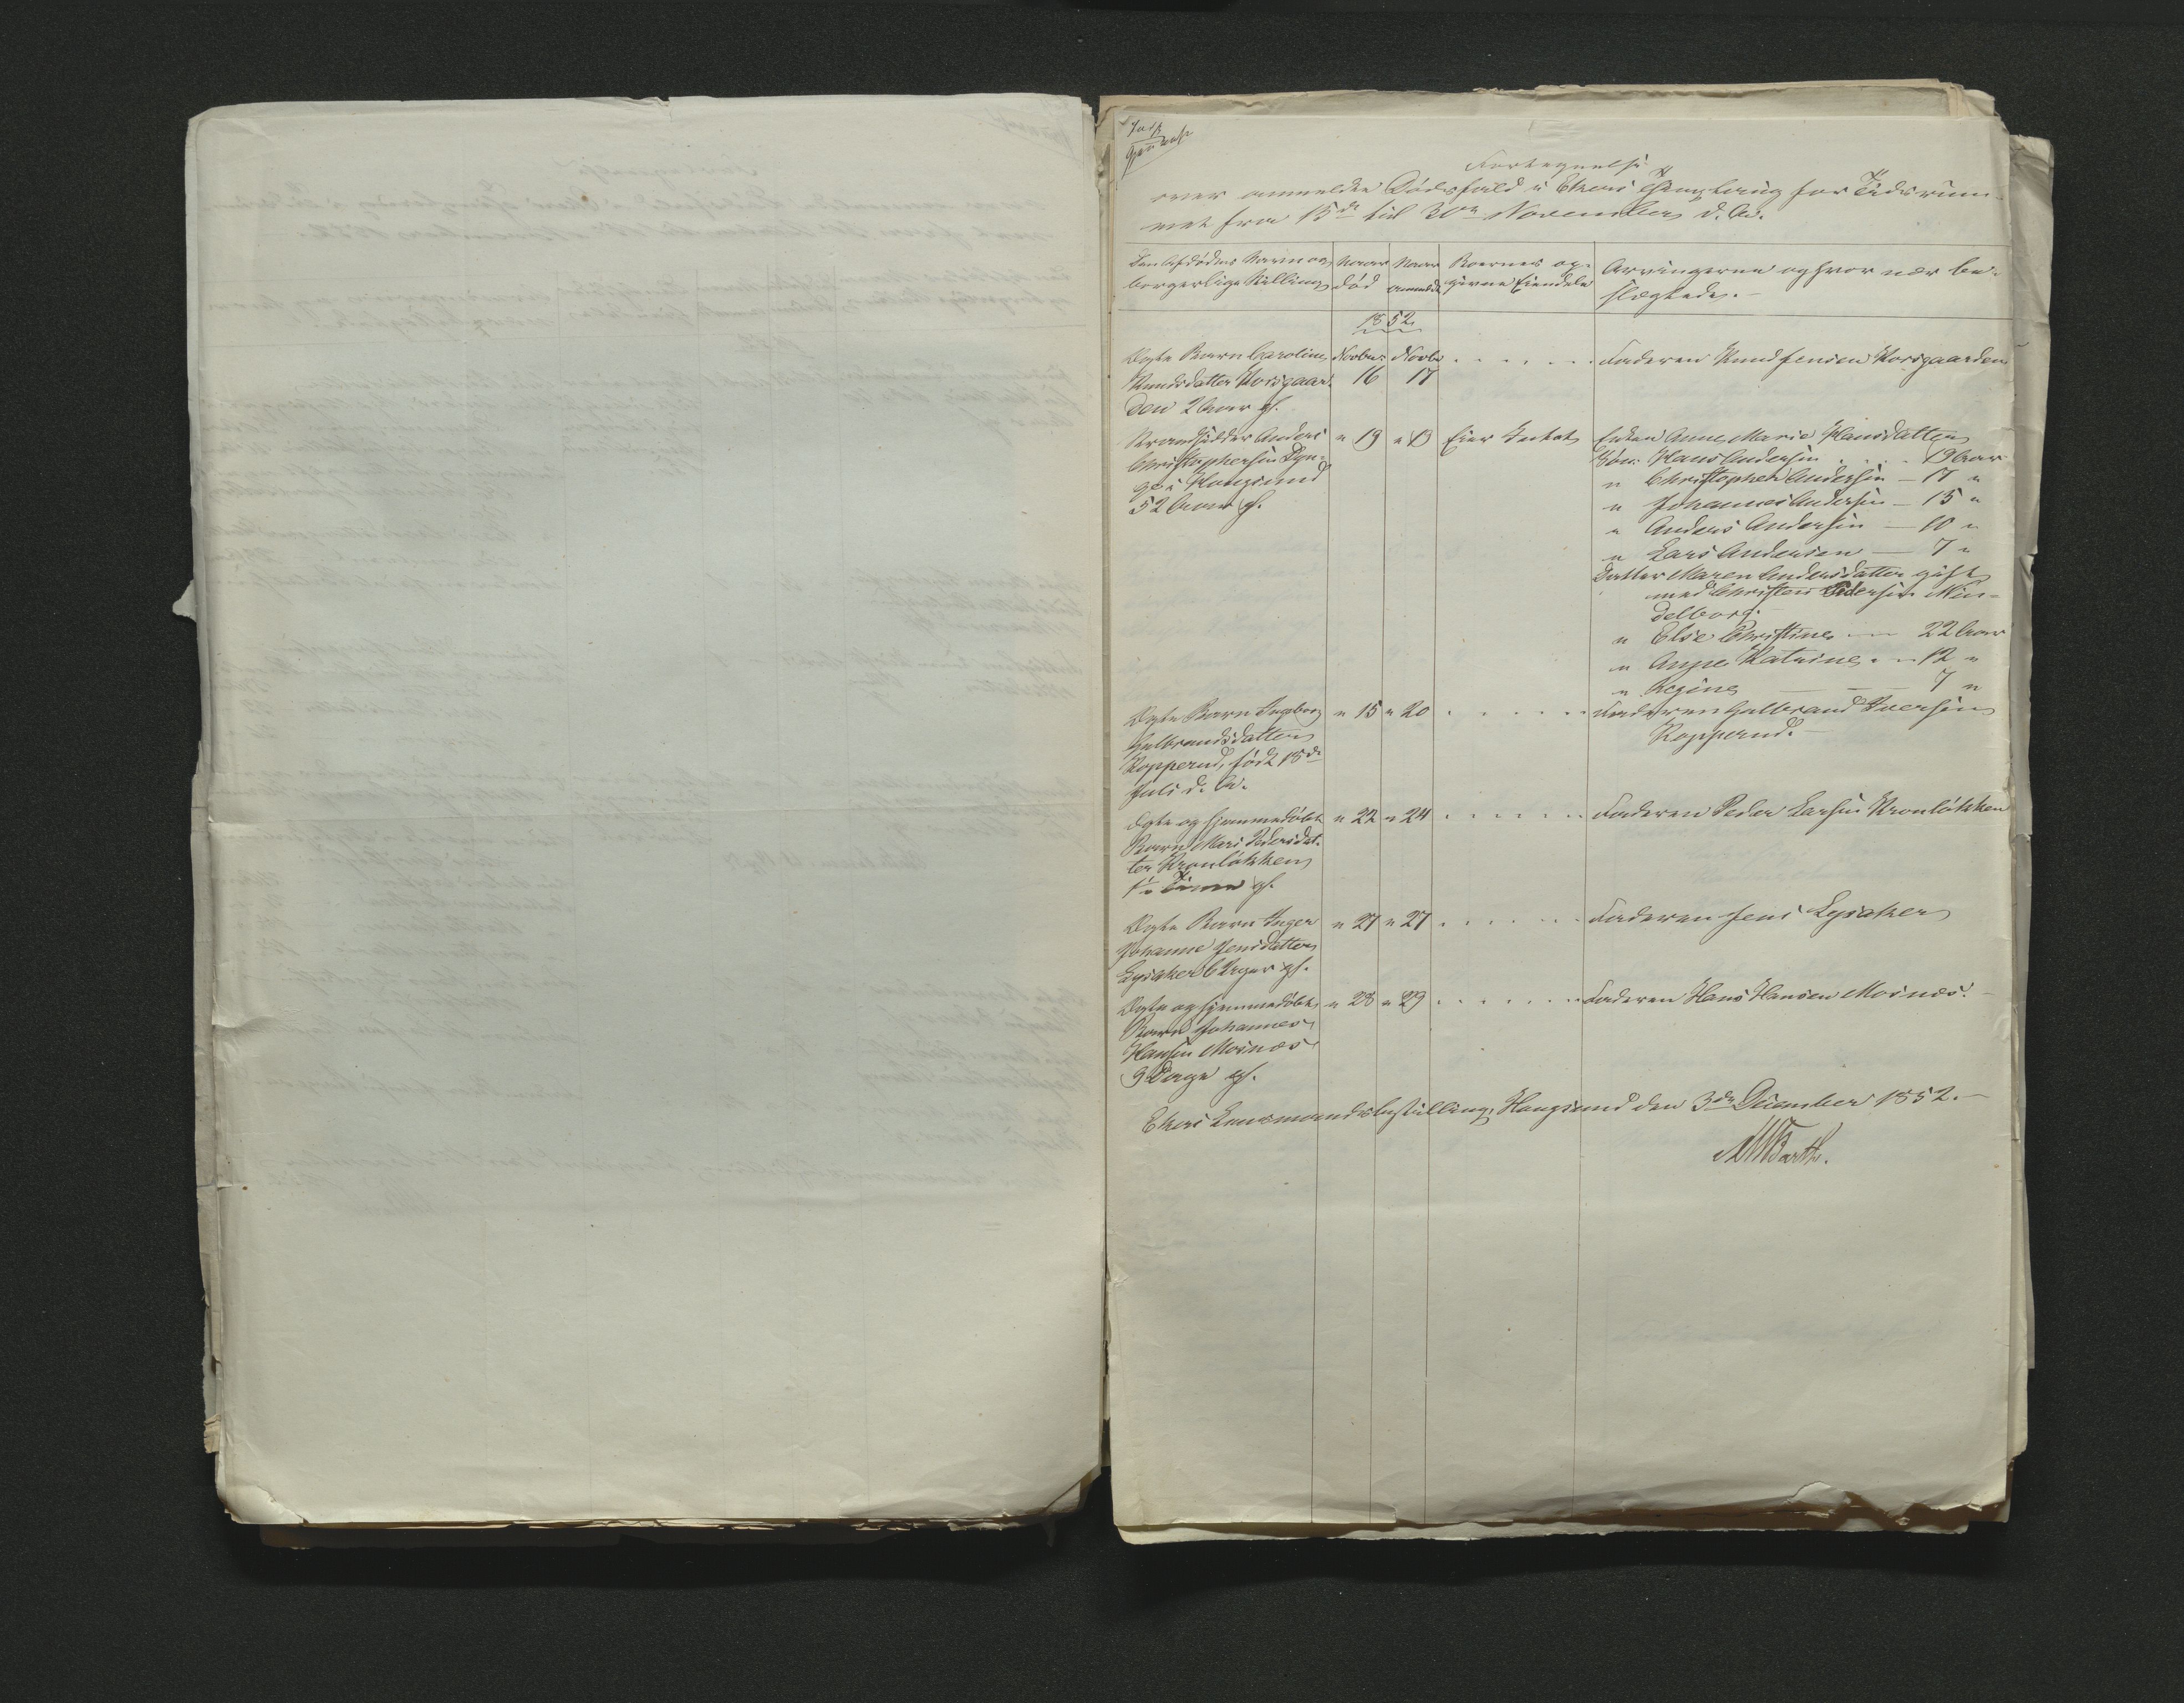 Fortegnelse
over anmeldte Dødsfald i Ekers Thinglaug for Tidsrum-
met fra 15de til 30te November d. A.
Den Afdødes Navn og
borgerlige Stilling
Naar
død
Naar
anmeldt
Boernes op-
givne Eiendele
Arvingerne og hvor nær be-
slægtede.
1852
Ægte Barn Caroline
Knudsdatter Korsgaar-
den 2 Aar gl.
Novbr
16
Novbr
17
Faderen Knud Jensen Korsgaarden
Strandsidder Anders
Christophersen
i Hougsund
52 Aar gl.
" 19
" 19
Eier Intet
Enken Anne Marie Hansdatter
Søn: Hans Andersen 19 Aar
" Christopher Andersen — 17 "
" Johannes Andersen — 15 "
" Anders Andersen — 10 "
" Lars Andersen — 7 "
Datter Maren Andersdatter gift
med Christen Pedersen Min-
delborg.
" Else Christine — 22 Aar
" Anne Katrine — 12 "
" Regine — 7 "
Ægte Barn Ingeborg
Gulbrandsdatter
Kopperud, født 18de
Juli d. A.
" 15
" 20
Faderen Gulbrand Iversen
Kopperud. —
Ægte og hjemmedøbt
Barn Mari Pedersdat-
ter Kronløkken
1½ Time gl.
" 22
" 24
Faderen Peder Larsen Kronløkken
Ægte Barn Inger
Johanne Jensdatter
Lysaker 6 Uger gl.
" 27
" 27
Faderen Jens Lysaker
Ægte og hjemmedøbt
Barn Johannes
Hansen Mosnæs
9 Dage gl.
" 28
" 29
Faderen Hans Hansen Mosnæs. —
Ekers Lensmandsbestilling, Hougsund den 3de December 1852. —
Barth.